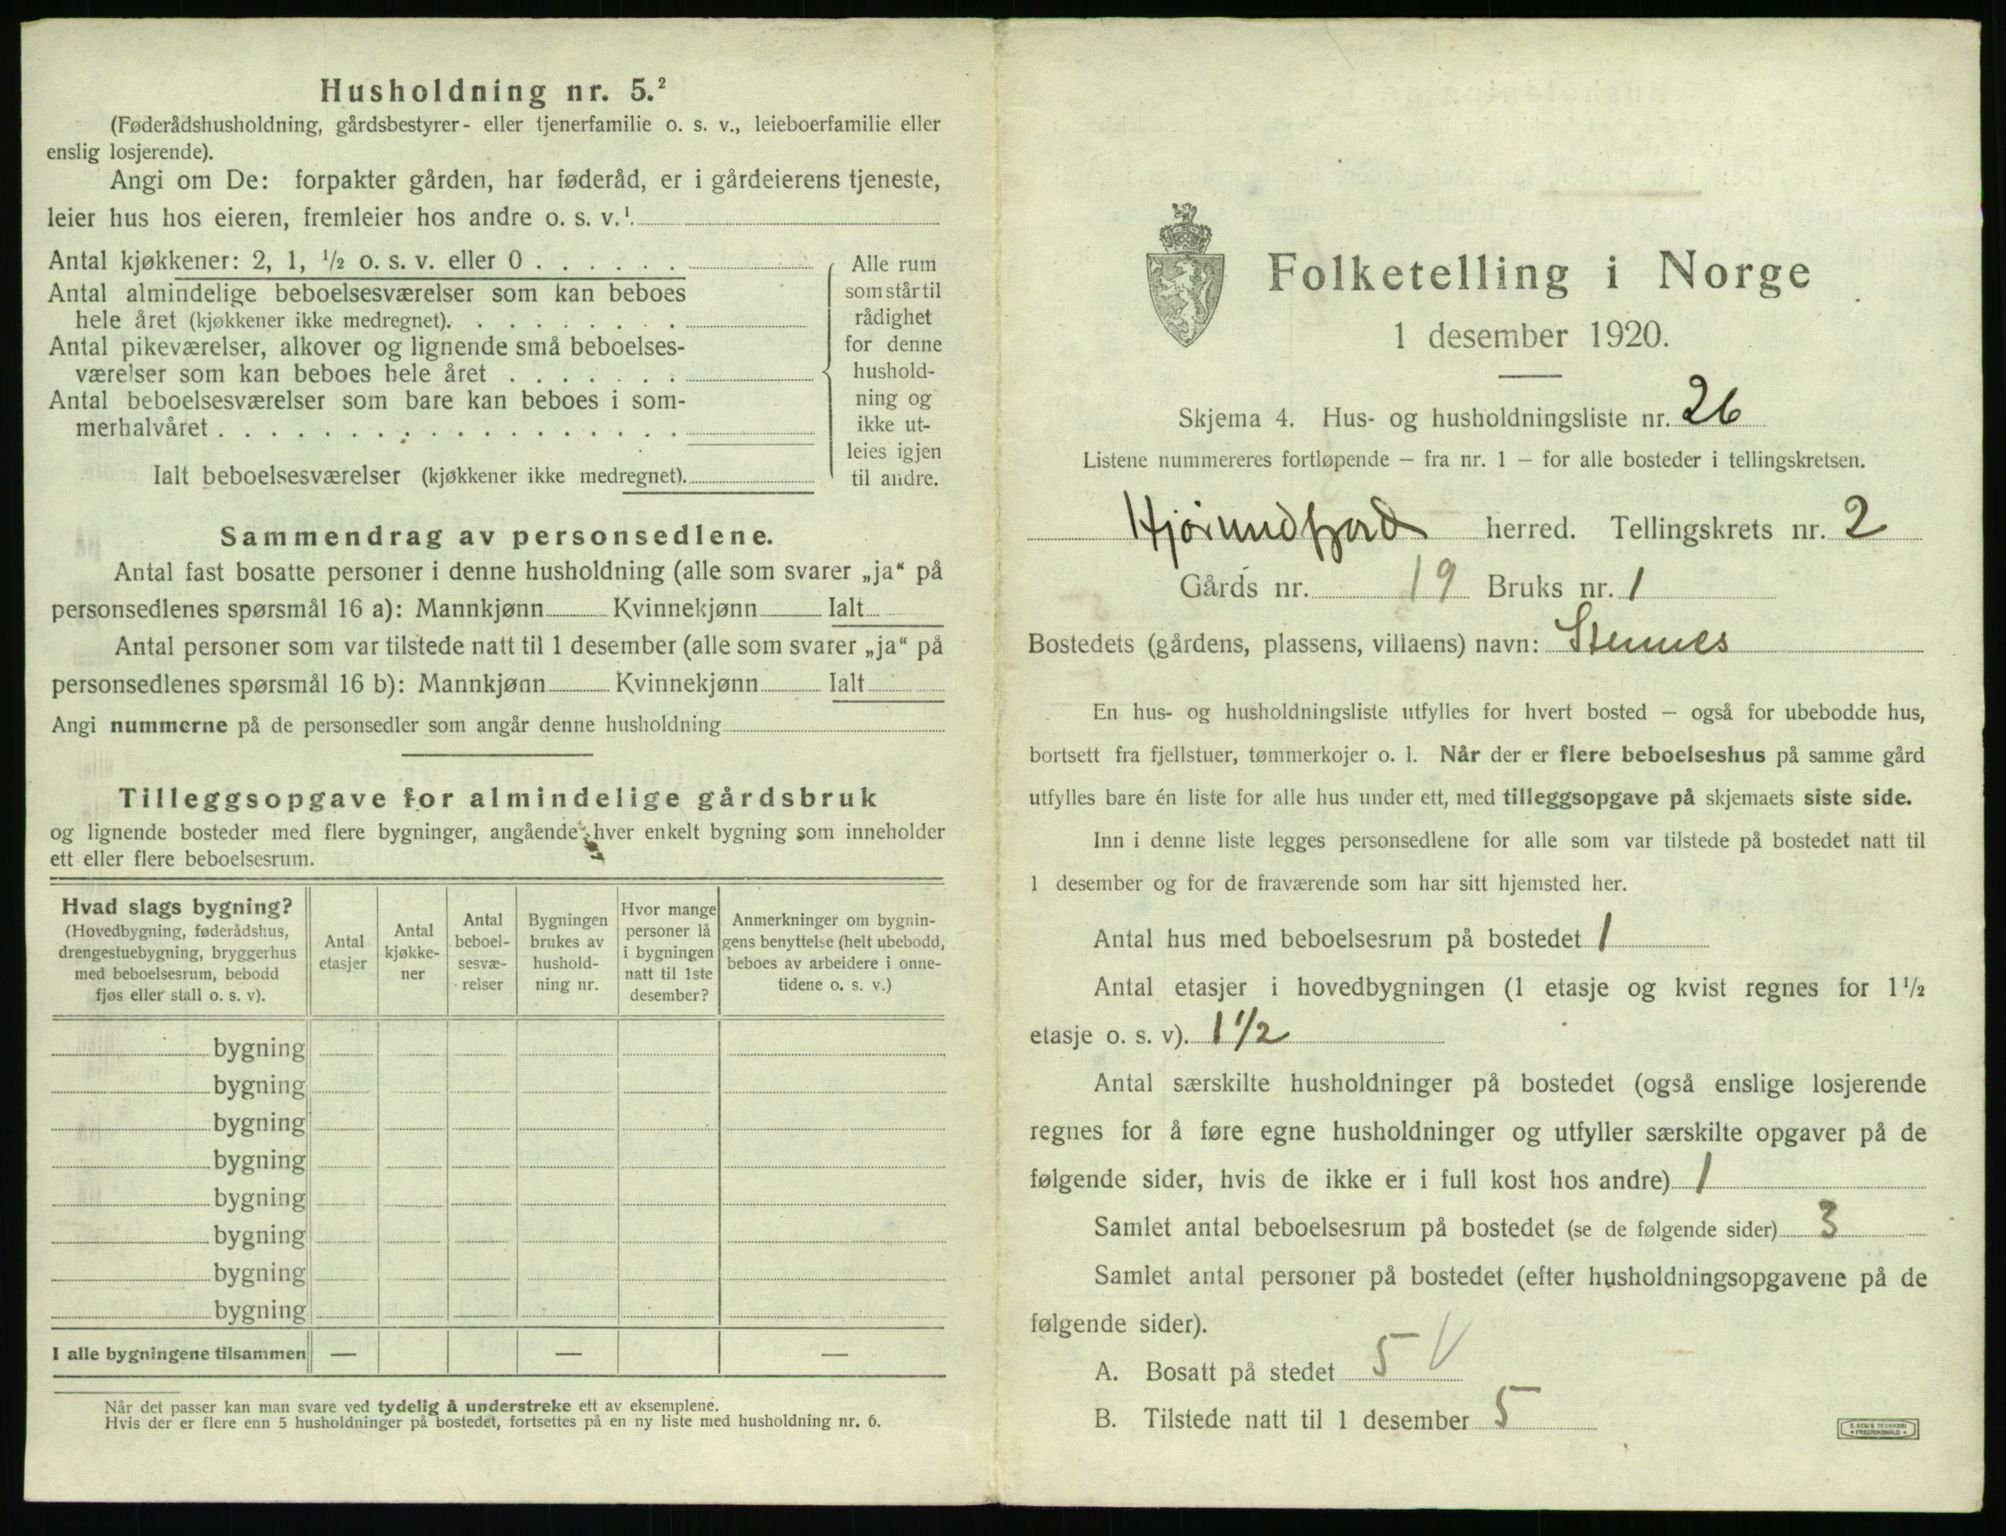 Husholdning nr. 5.²
(Føderådshusholdning, gårdsbestyrer- eller tjenerfamilie o. s. v., leieboerfamilie eller
enslig losjerende).
Angi om De: forpakter gården, har føderåd, er i gårdeierens tjeneste,
leier hus hos eieren, fremleier hos andre o. s. v.¹
Antal kjøkkener: 2, 1, ½ o. s. v. eller 0 . . . . . .
Antal almindelige beboelsesværelser som kan beboes
hele året (kjøkkener ikke medregnet). . . . . . . . .
Antal pikeværelser, alkover og lignende små beboelses-
værelser som kan beboes hele året . . . . . . .
Antal beboelsesværelser som bare kan beboes i som-
merhalvåret . . . . . . . . . . . . . . . . . .
Ialt beboelsesværelser (kjøkkener ikke medregnet).
Alle rum
som står til
rådighet
for denne
hushold-
ning og
ikke ut-
leies igjen
til andre.
Sammendrag av personsedlene.
Antal fast bosatte personer i denne husholdning (alle som svarer „ja“ på
personsedlenes spørsmål 16 a): Mannkjønn Kvinnekjønn Ialt
Antal personer som var tilstede natt til 1 desember (alle som svarer „ja“ på
personsedlenes spørsmål 16 b): Mannkjønn Kvinnekjønn Ialt
Angi nummerne på de personsedler som angår denne husholdning
Tilleggsopgave for almindelige gårdsbruk
og lignende bosteder med flere bygninger, angående hver enkelt bygning som inneholder
ett eller flere beboelsesrum.
Hvad slags bygning?
(Hovedbygning, føderådshus,
drengestuebygning, bryggerhus
med beboelsesrum, bebodd
fjøs eller stall o. s. v).
Antal
etasjer
Antal
kjøkke-
ner
Antal
beboel-
sesvæ-
relser
Bygningen
brukes av
hushold-
ning nr.
Hvor mange
personer lå
i bygningen
natt til 1ste
desember?
Anmerkninger om bygnin-
gens benyttelse (helt ubebodd,
beboes av arbeidere i onne-
tidene o. s. v.)
bygning
bygning
bygning
bygning
bygning
bygning
bygning
bygning
I alle bygningene tilsammen — — —
Når det passer kan man svare ved tydelig å understreke ett av eksemplene.
Hvis der er flere enn 5 husholdninger på bostedet, fortsettes på en ny liste med husholdning nr. 6.
Folketelling i Norge
1 desember 1920.
Skjema 4. Hus- og husholdningsliste nr. 26
Listene nummereres fortløpende — fra nr. 1 — for alle bosteder i tellingskretsen.
Hjørundfjord herred. Tellingskrets nr. 2
Gårds nr. 19 Bruks nr. 1
Bostedets (gårdens, plassens, villaens) navn: Stennes
En hus- og husholdningsliste utfylles for hvert bosted — også for ubebodde hus,
bortsett fra fjellstuer, tømmerkojer o. l. Når der er flere beboelseshus på samme gård
utfylles bare én liste for alle hus under ett, med tilleggsopgave på skjemaets siste side.
Inn i denne liste legges personsedlene for alle som var tilstede på bostedet natt til
1 desember og for de fraværende som har sitt hjemsted her.
Antal hus med beboelsesrum på bostedet 1
Antal etasjer i hovedbygningen (1 etasje og kvist regnes for 1½
etasje o. s. v). 1 1/2
Antal særskilte husholdninger på bostedet (også enslige losjerende
regnes for å føre egne husholdninger og utfyller særskilte opgaver på de
følgende sider, hvis de ikke er i full kost hos andre) 1
Samlet antal beboelsesrum på bostedet (se de følgende sider) 3
Samlet antal personer på bostedet (efter husholdningsopgavene på de
følgende sider).
A. Bosatt på stedet 5 V
B. Tilstede natt til 1 desember 5